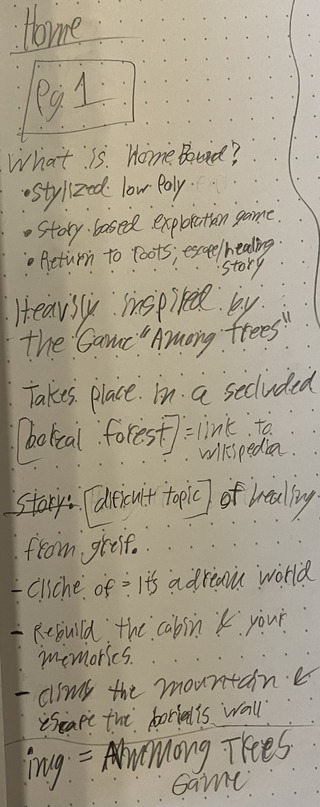 Home
Pg. 1
What is HomeBound?
• Stylized low Poly
• Story based exploration game
• Return to roots; escape/healing
story
Heavily inspired by
the Game "Among trees"
Takes place in a secluded
[boreal forest] = link to
wikipedia
Story: [dificult topic] of healing
from greif.
- Cliche of = It's a dream world
- Rebuild the cabin & your
memories.
- climb the mountain &
escape the borialis wall
img = Among Trees
Game